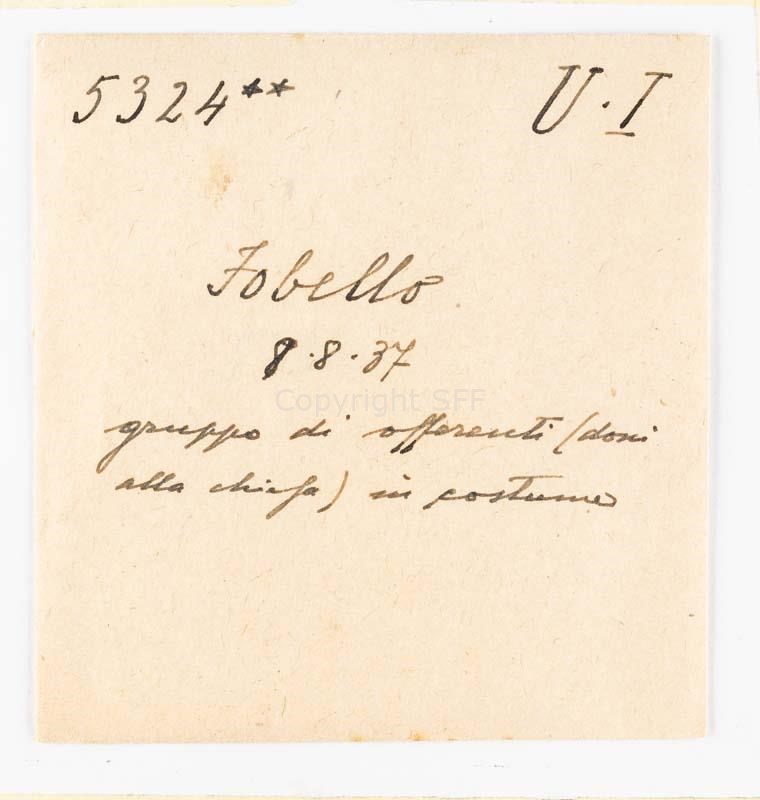 5324** U.I
Fobello
8.8.37
Copyright SFF
gruppo di offerenti (doni
alla chiesa) in costume